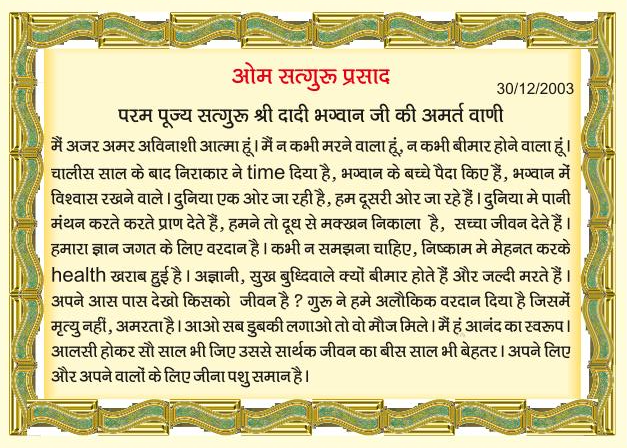 ओम सत्गुरू प्रसाद
30/12/2003
परम पूज्य सत्गुरू श्री दादी भगवान जी की अमर्त वाणी
मैं अजर अमर अविनाशी आत्मा हूं। मैं न कभी मरने वाला हूं, न कभी बीमार होने वाला हूं।
चालीस साल के बाद निराकार ने time दिया है, भगवान के बच्चे पैदा किए हैं, भगवान में
विश्वास रखने वाले। दुनिया एक ओर जा रही है, हम दूसरी ओर जा रहे हैं। दुनिया मे पानी
मंथन करते करते प्राण देते हैं, हमने तो दूध से मक्खन निकाला है, सच्चा जीवन देते हैं।
हमारा ज्ञान जगत के लिए वरदान है। कभी न समझना चाहिए, निष्काम मे मेहनत करके
health खराब हुई है। अज्ञानी, सुख बुध्दिवाले क्यों बीमार होते हैं और जल्दी मरते हैं।
अपने आस पास देखो किसको जीवन है ? गुरू ने हमे अलौकिक वरदान दिया है जिसमें
मृत्यु नहीं, अमरता है। आओ सब डुबकी लगाओ तो वो मौज मिले। मैं हं आनंद का स्वरूप।
आलसी होकर सौ साल भी जिए उससे सार्थक जीवन का बीस साल भी बेहतर। अपने लिए
और अपने वालों के लिए जीना पशु समान है।